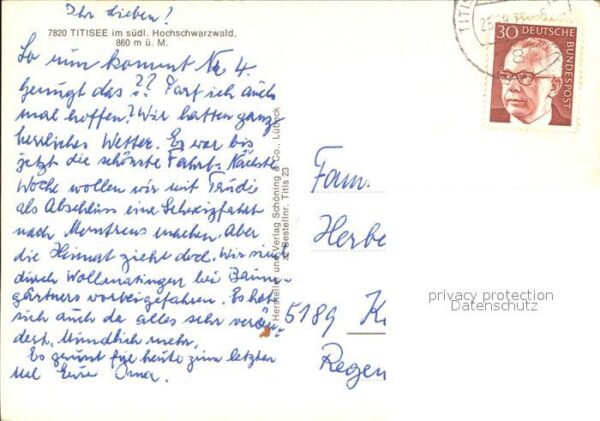 Ihr Lieben!
7820 TITISEE im südl. Hochschwarzwald,
860 m ü. M.
So nun kommt Nr 4.
Genügt das?? Darf ich auch
mal hoffen? Wir hatten ganz
herrliches Wetter. Es war bis
jetzt die schönste Fahrt. Nächste
Woche wollen wir mit Trudi
als Abschluss eine Schweizfahrt
nach Montreux machen. Aber
die Heimat zieht doch. Wir sind
durch Wollmatingen bei Baum-
gärtners vorbeigefahren. Es hat
sich auch da alles sehr verän-
dert. Mündlich mehr.
Es grüsst für heute zum letzten
Mal Eure Oma.
Hersteller und Verlag Schöning & Co., Lübeck
Bestellnr. Titis 23
TITIS
30
DEUTSCHE
BUNDESPOST
Fam.
Herbe
5189 K
Regen
privacy protection
Datenschutz